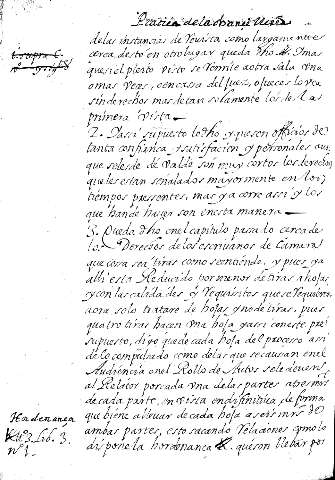 Practica de la chancilleria
de las instancias de Revista como largamente
cerca desto en otro lugar queda dho. mas
que si el pleyto visto se remite a otra sala una
o mas veces, en casa del juez, o jueces lo vea
sin derechos mas lleban solamente los de la
primera vista.
2. I assi supuesto lo dho, y que son officios de
tanta confiança, y satisfacion y personales aun
que solos de valde son muy cortos los derechos
que les estan señalados mayormente en los
tiempos pressentes, mas ya corre assi y les
que han de haber son en esta manera
3. Queda dho en el capitulo pasado cerca de
los Derechos de los escrivanos de Camara
que cosa sea tiras como se entiende, y pues ya
alli esta Reducido por numero de tiras a hojas
y con las calidades y requisitos que se requieren
aora solo tratare de hojas y no de tiras, pues
quatro tiras hacen una hoja y assi con este pre
supuesto, digo que de cada hoja del proceso assi
de lo compulsado como de las que se causaren en el
Audiencia en el Rollo de Autos se le deven
al Relator por cada una de las partes a tres mrs
de cada parte, en vista en definitiva, de forma
que viene a llevar de cada hoja a seis mrs de
ambas partes, esto sacando Relaciones como lo
dispone la hordenanza
Hordenança
lib. 3.
n. 1.